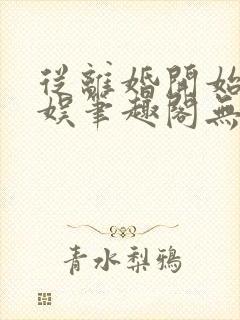 從離婚開始
娛筆趣閣無
青水梨鴉